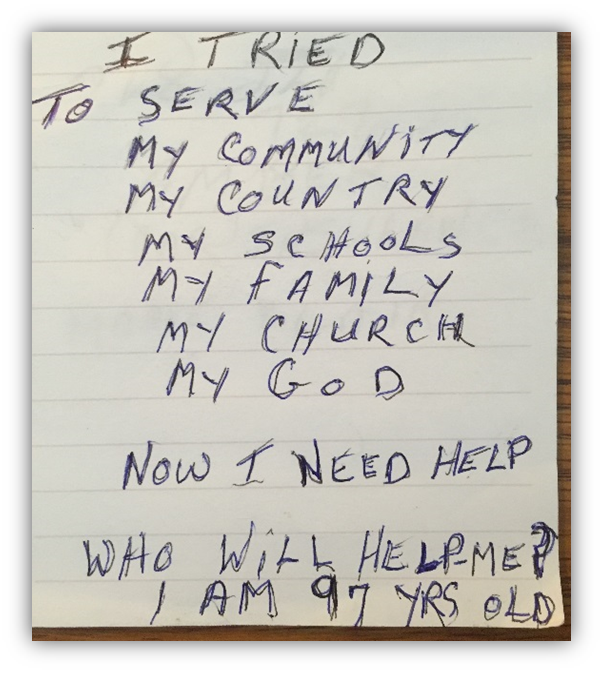 I TRIED
TO SERVE
MY COMMUNITY
MY COUNTRY
MY SCHOOLS
MY FAMILY
MY CHURCH
MY GOD
NOW I NEED HELP
WHO WILL HELP-ME?
I AM 97 YRS OLD